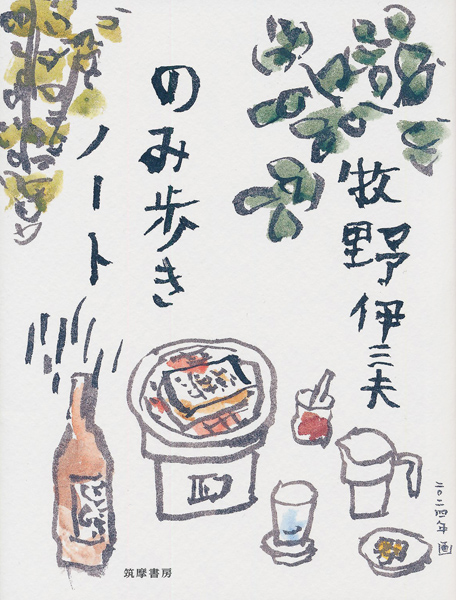 牧野伊三夫
のみ歩き
ノート
二〇二四年 画
筑摩書房